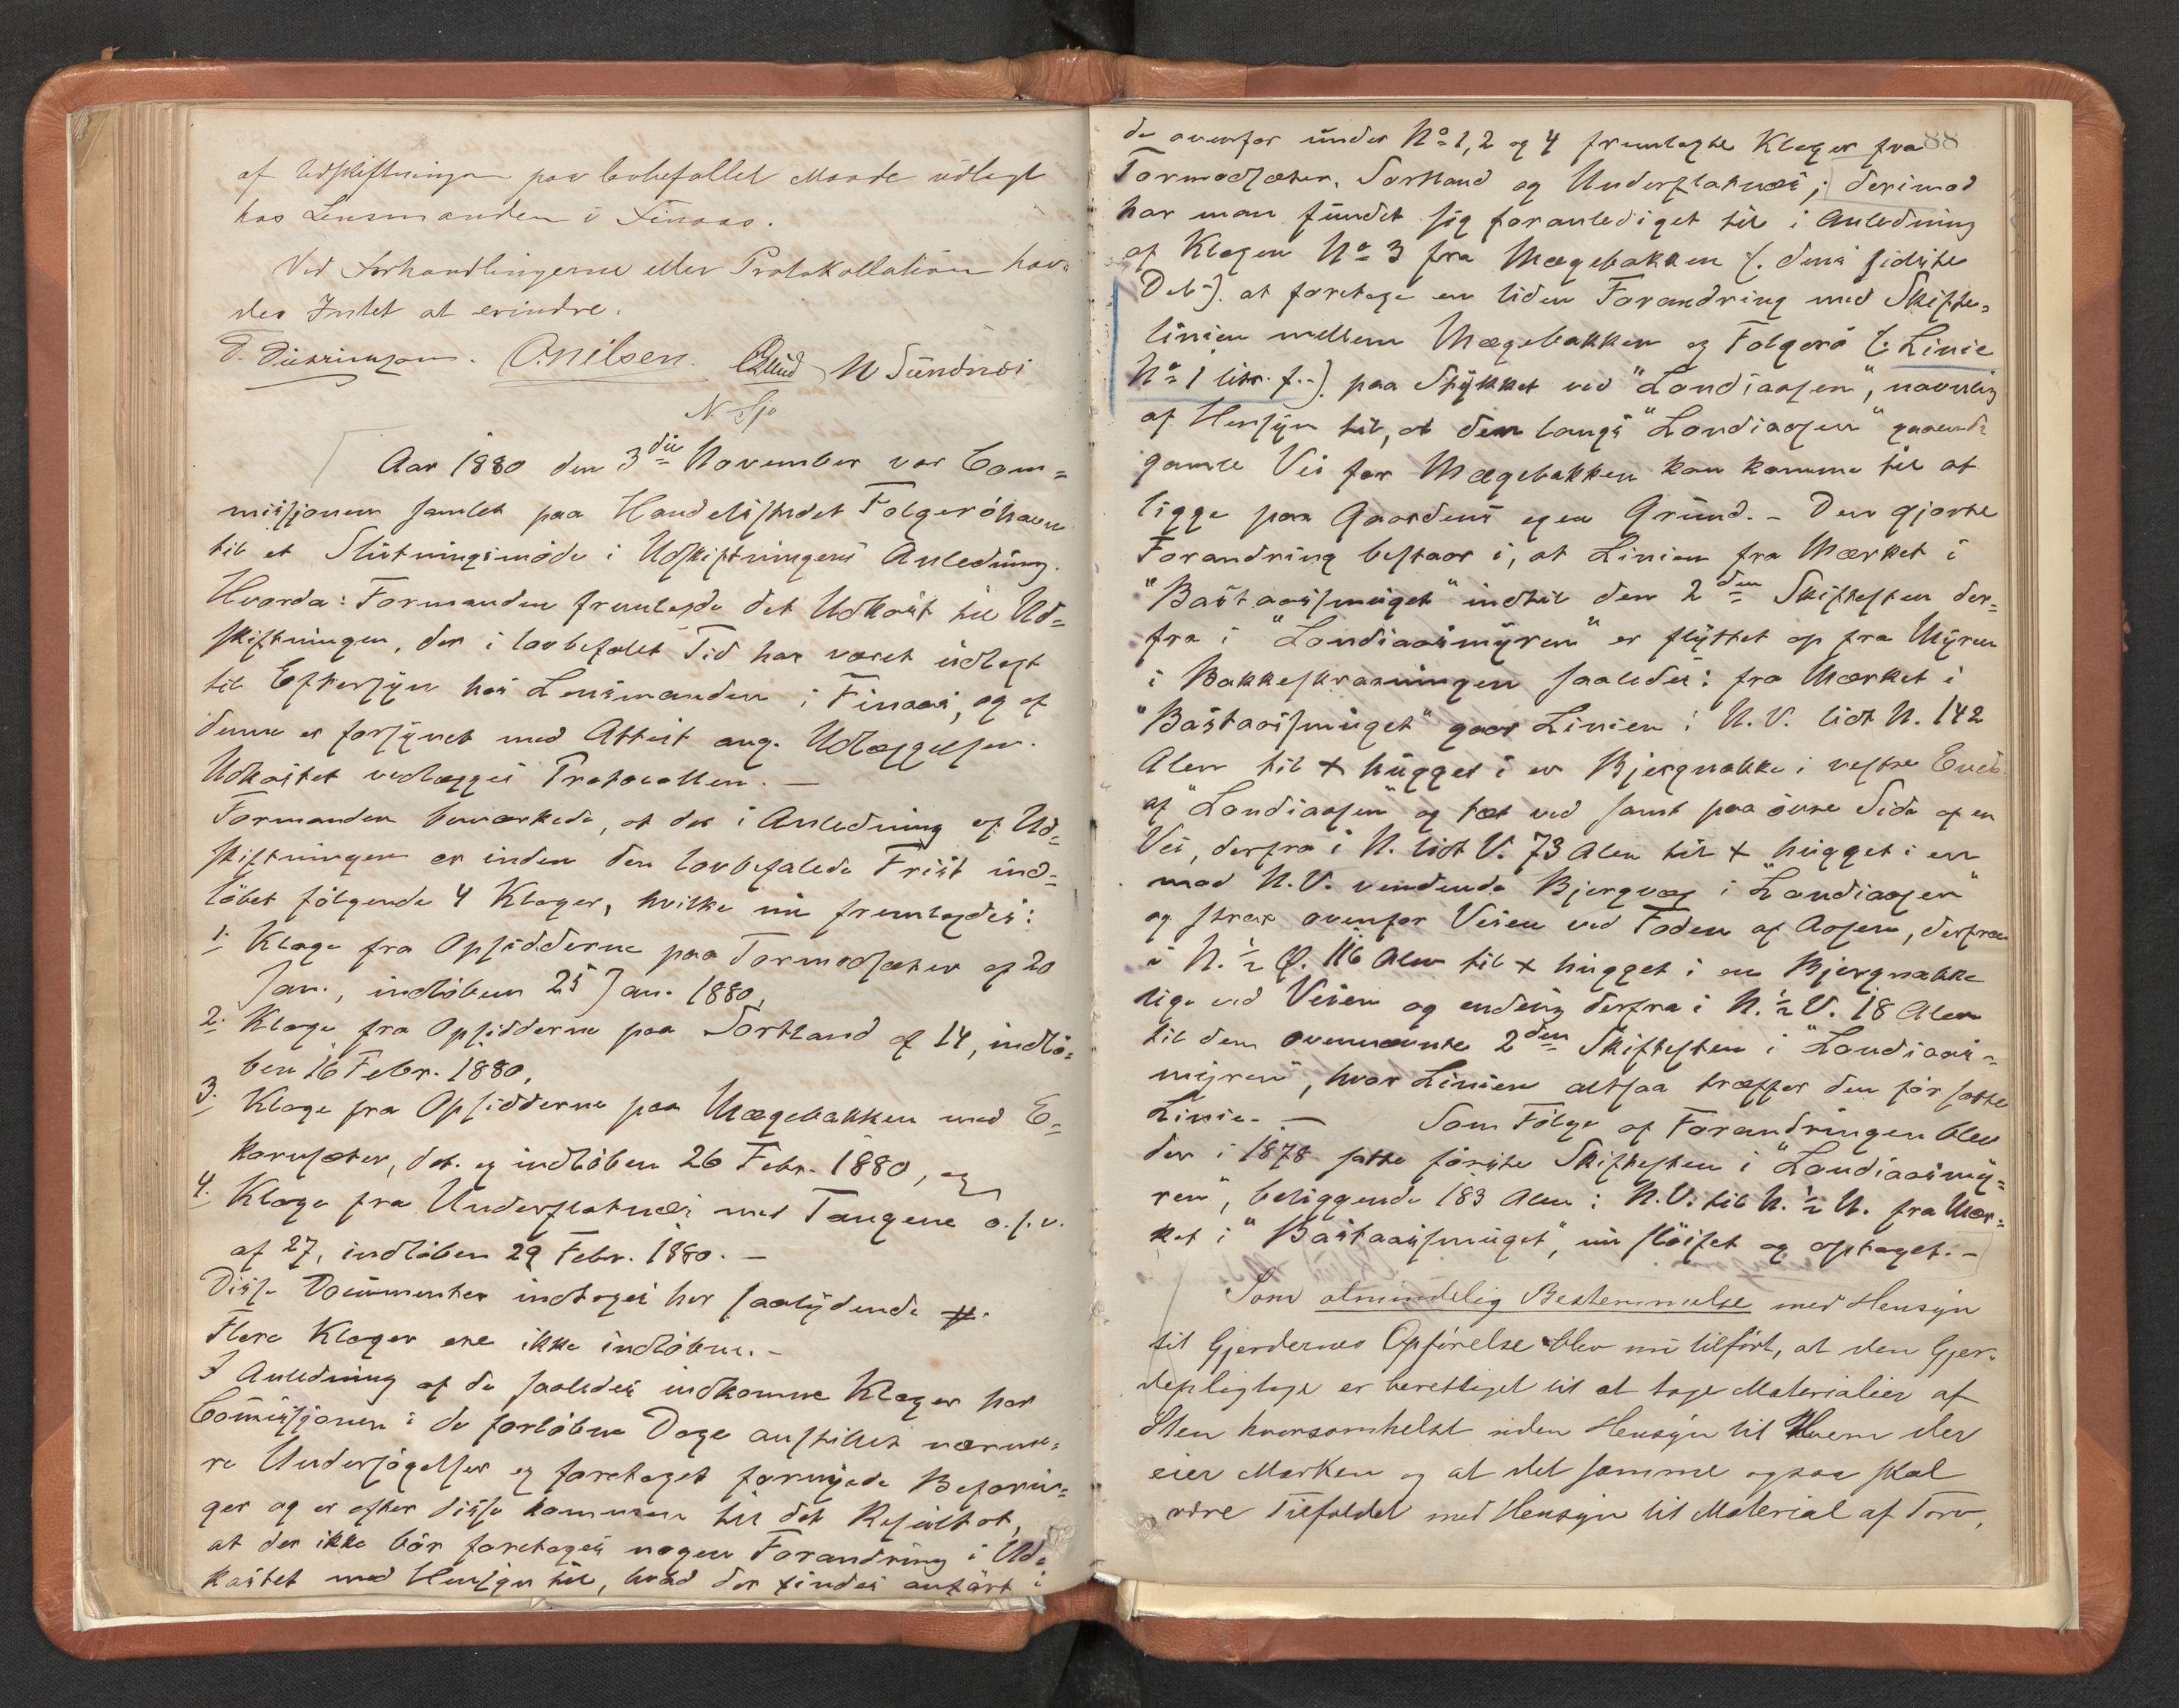 af Udskiftningen paa lovbefallet Maade udlagt
hos Lensmanden i Finaas.
Ved Forhandlingerne eller Protokollationen hav-
des Intet at erindre.
O. Nilsen. N Sundnæs
Aar 1880 den 3die November var Com=
missjonen samlet paa Handelsstedet Folgeröhavn
til et Slutningsmöde i Udskiftningens Anledning.
Hvorda: Formanden fremlagde det Udkast til Ud=
skiftningen, der i lovbefalet Tid har været udlagt
til Eftersyn hos Lensmanden i Finaas, og af
denne er forsynet med Attest ang. Udlæggelsen.
Udkastet vedlægges Protocollen. —
Formanden bemærkede, at der i Anledning af Ud=
skiftningen er inden den lovbefalede Frist ind=
löbet fölgende 4 Klager, hvilke nu fremlagdes:
1. Klage fra Opsidderne paa Tormodsæter af 20
Jan., indlöben 25 Jan. 1880,
2. Klage fra Opsidderne paa Sortland af 14, indlö=
ben 16 Febr. 1880,
3. Klage fra Opsidderne paa Mægebakken med E=
kornsæter, dat. og indlöben 26 Febr. 1880, og
4. Klage fra Underflatnæs med Tangene o.s.v.
af 27, indlöben 29 Febr. 1880. —
Disse Documenter indtages her saalydende #.
Flere Klager ere ikke indlöbne. —
I Anledning af de saaledes indkomne Klager har
Commissjonen i de forlöbne Dage anstillet nærme=
re Undersögelser og foretaget fornyede Befarin=
ger og er efter disse kommen til det Resultat,
at der ikke bör foretages nogen Forandring i Ud=
kastet med Hensyn til, hvad der findes anfört i
88
de ovenfor under No 1, 2 og 4 fremlagte Klager fra
Tormodsæter, Sortland og Underflatnæs; derimod
har man fundet sig foranlediget til i Anledning
af Klagen No 3 fra Mægebakken (: dens sidste
Del :) at foretage en liden Forandring med Skifte=
linien mellem Mægebakken og Folgerö (: Linie
No 1 litr. f. :) paa Stykket ved "Londiaasen", navnlig
af Hensyn til, at den langs "Londiaasen" gaaende
gamle Vei for Mægebakken kan komme til at
ligge paa Gaardens egen Grund. – Den gjorte
Forandring bestaar i, at Linien fra Mærket i
"Bastaassmuget" indtil den 2den Skiftesten der=
fra i "Londiaasmyren" er flyttet op fra Myren
i Bakkeskraaningen saaledes: fra Mærket i
"Bastaassmuget" gaar Linien i N.V. lidt N. 142
Alen til + hugget i en Bjergnakke i vestre Ende
af "Londiaasen" og tæt ved samt paa övre Side af en
Vei, derfra i N. lidt V. 73 Alen til + hugget i en
mod N.V. vendende Bjergvæg i "Londiaasen"
og strax ovenfor Veien ved Foden af Aasen, derfra
i N. ½ Ø. 116 Alen til + hugget i en Bjergnakke
lige ved Veien og endelig derfra i N. ½ V. 18 Alen
til den ovennævnte 2den Skiftesten i "Londiaas=
myren", hvor Linien altsaa træffer den för satte
Linie. — Som Fölge af Forandringen blev
den i 1878 satte förste Skiftesten i "Londiaasmy=
ren", beliggende 183 Alen i N.V. til N. ½ N. fra Mær=
ket i "Bastaassmuget", nu slöifet og optaget. –
Som almindelig Bestemmelse med Hensyn
til Gjerdernes Opförelse blev nu tilfört, at den Gjer-
depligtige er berettiget til at tage Materialier af
Sten hvorsomhelst uden Hensyn til Hvem der
eier Marken og at det samme ogsaa skal
være Tilfældet med Hensyn til Material af Torv,